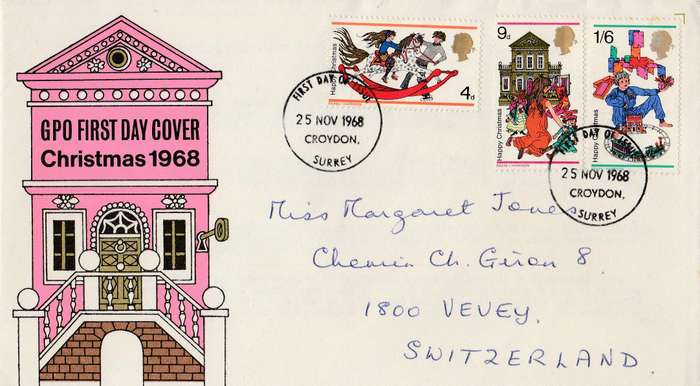 GPO FIRST DAY COVER
Christmas 1968
Happy Christmas
4d
9d
Happy Christmas
1/6
Happy Christmas
FIRST DAY OF ISSUE
25 NOV 1968
CROYDON,
SURREY
FIRST DAY OF ISSUE
25 NOV 1968
CROYDON,
SURREY
Miss Margaret Jones
Chemin Ch. Giron 8
1800 VEVEY,
SWITZERLAND